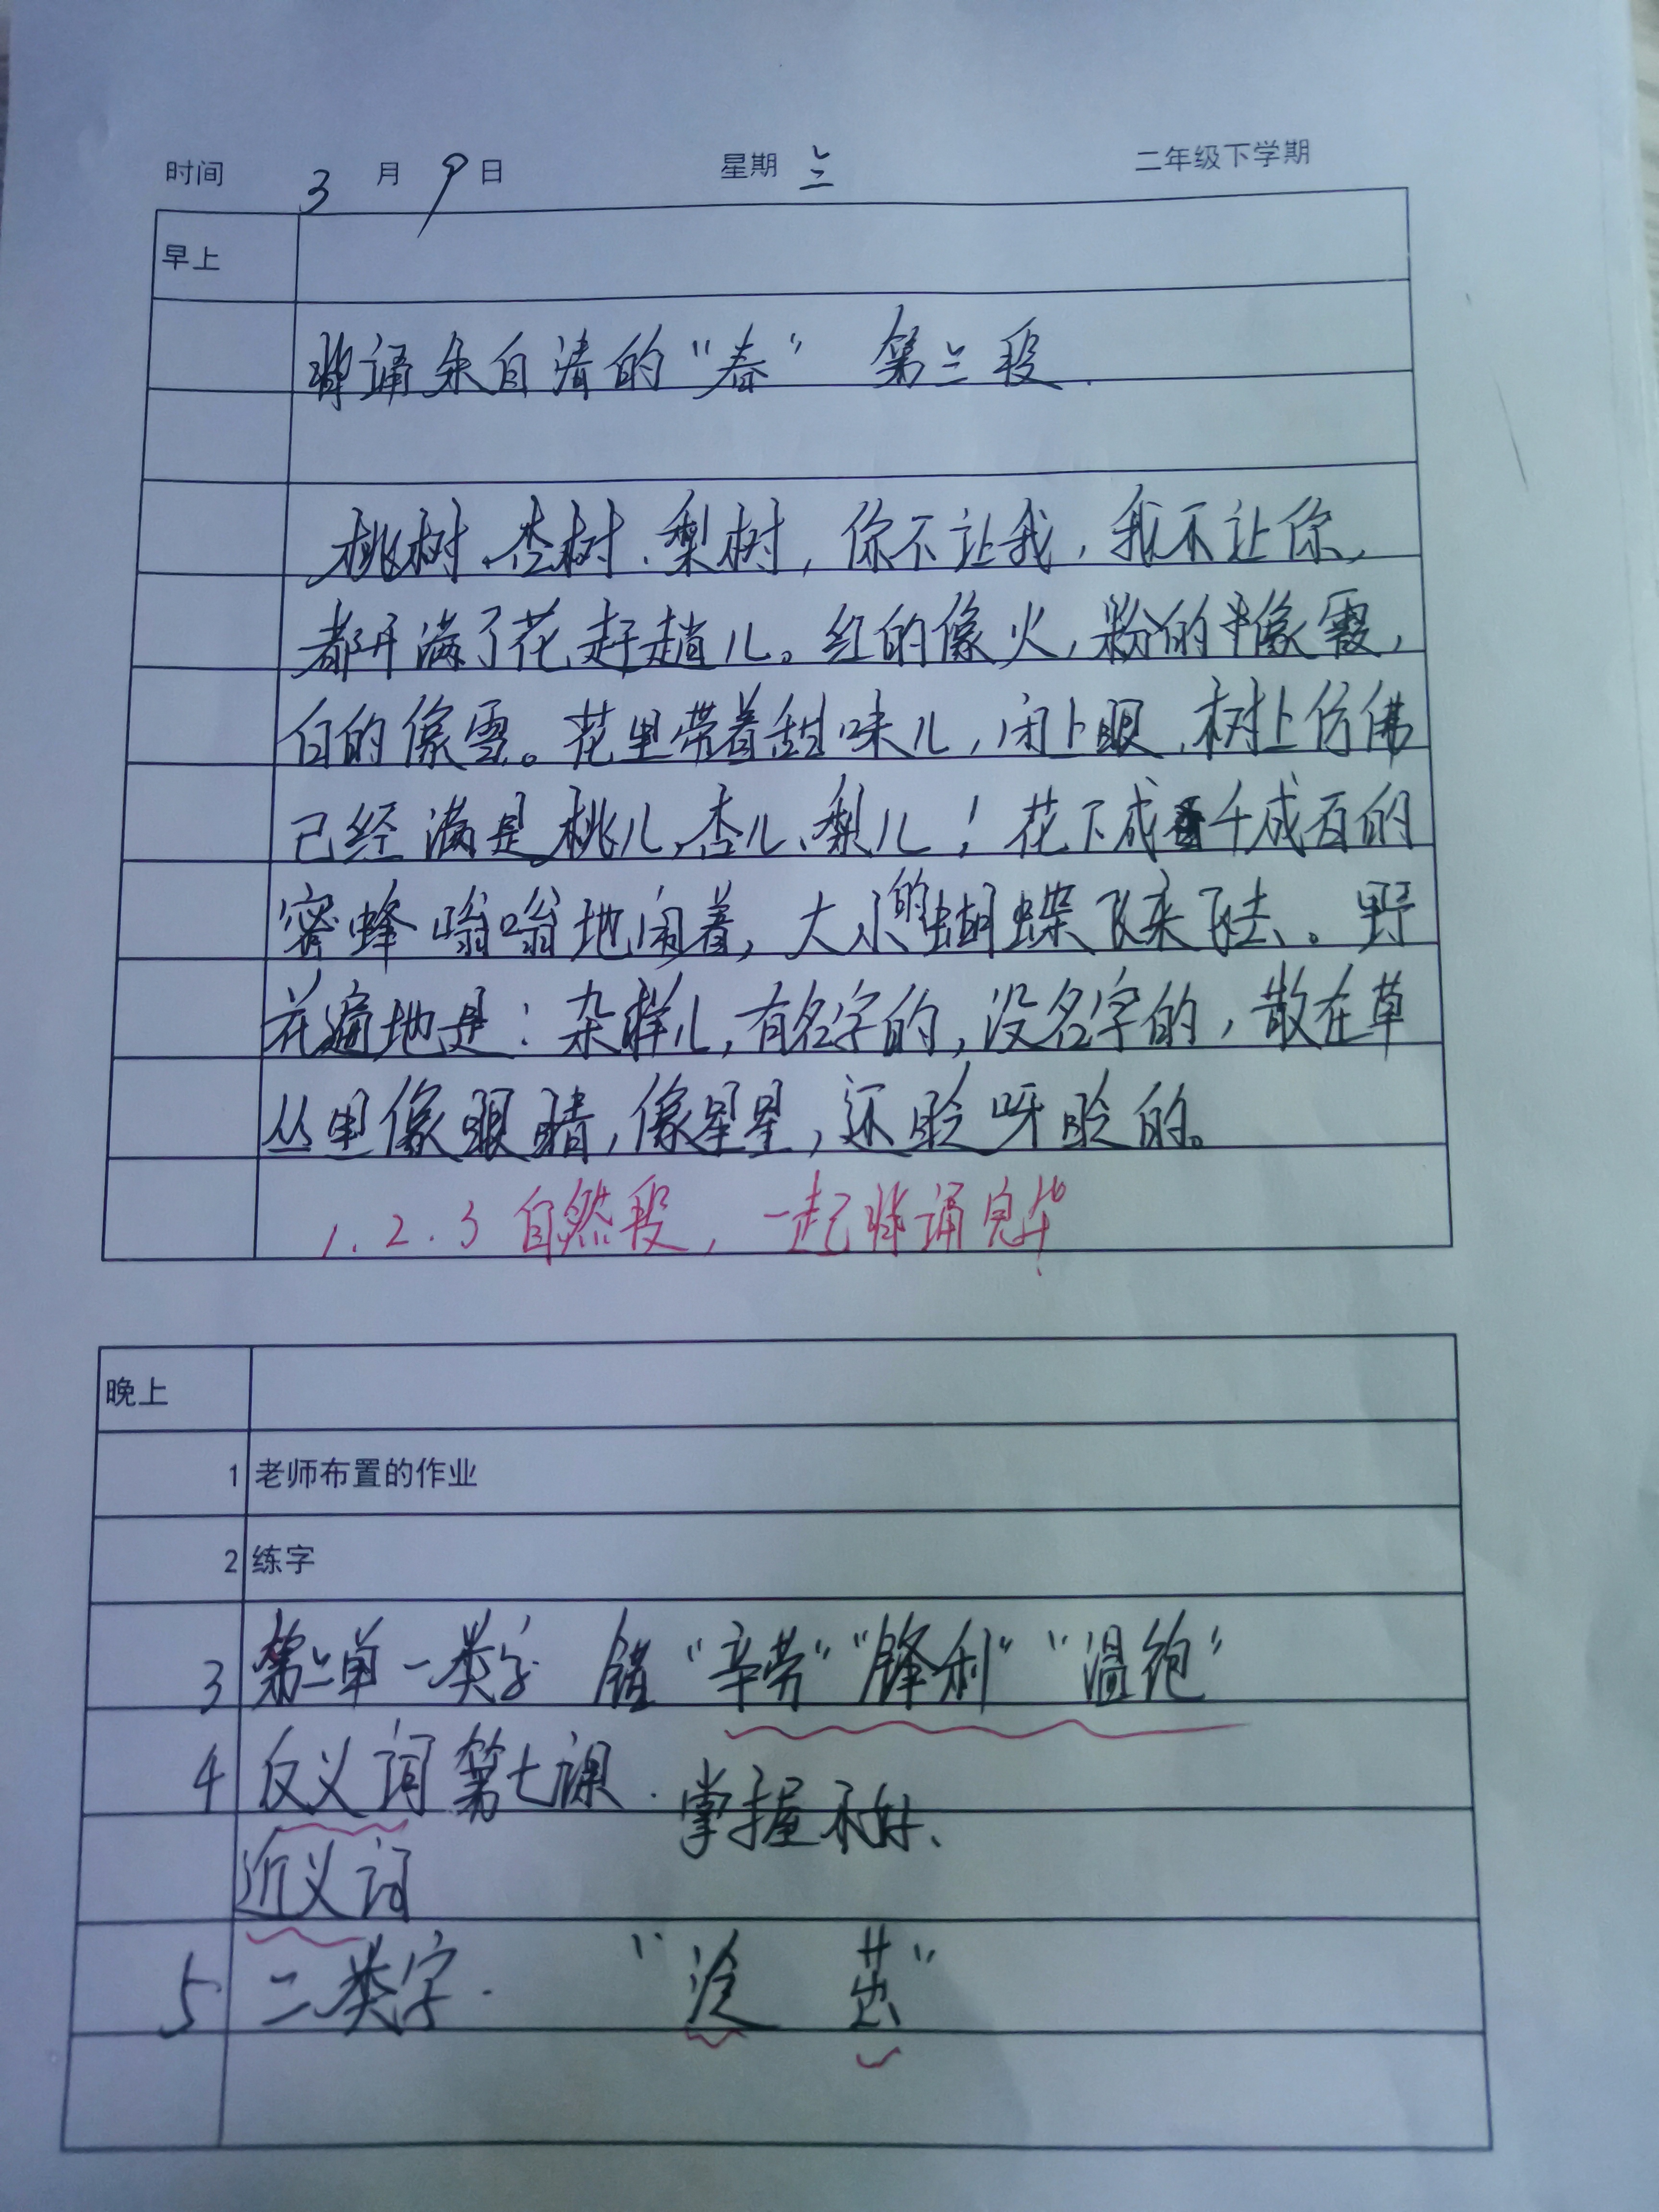 时间 3 月 9 日 星期 三 二年级下学期
早上
背诵朱自清的“春” 第三段.
桃树、杏树、梨树，你不让我，我不让你，
都开满了花赶趟儿。红的像火，粉的像霞，
白的像雪。花里带着甜味儿，闭上眼，树上仿佛
已经满是桃儿、杏儿、梨儿！花下成千成百的
蜜蜂嗡嗡地闹着，大小的蝴蝶飞来飞去。野
花遍地是：杂样儿，有名字的，没名字的，散在草
丛里像眼睛，像星星，还眨呀眨的。
1.2.3自然段，一起背诵完毕
晚上
1 老师布置的作业
2 练字
3 第二单一类字 错“辛劳”“锋利”“温饱”
4 反义词第七课. 掌握不好、
近义词
5 二类字. “ 茁”